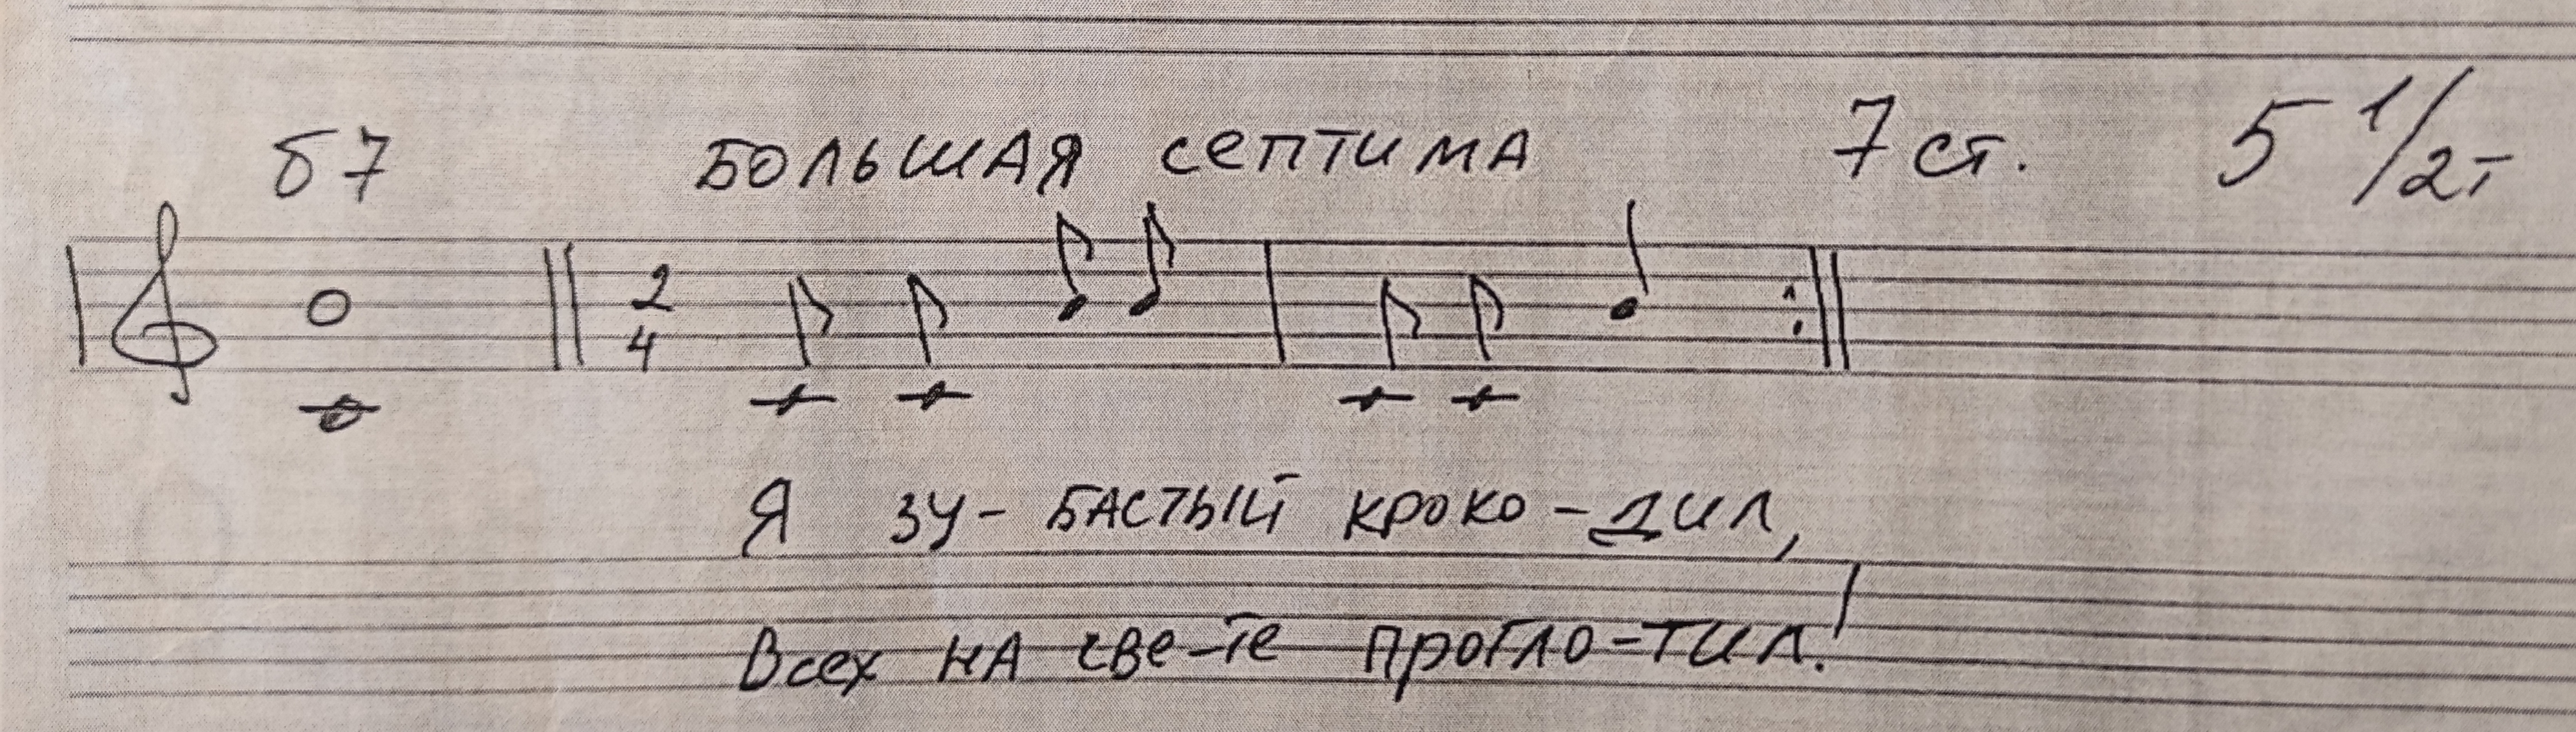 б7 БОЛЬШАЯ СЕПТИМА 7 ст. 5 1/2т
2
4
Я зу- бастый кроко-дил,
Всех на све-те прогло-тил!